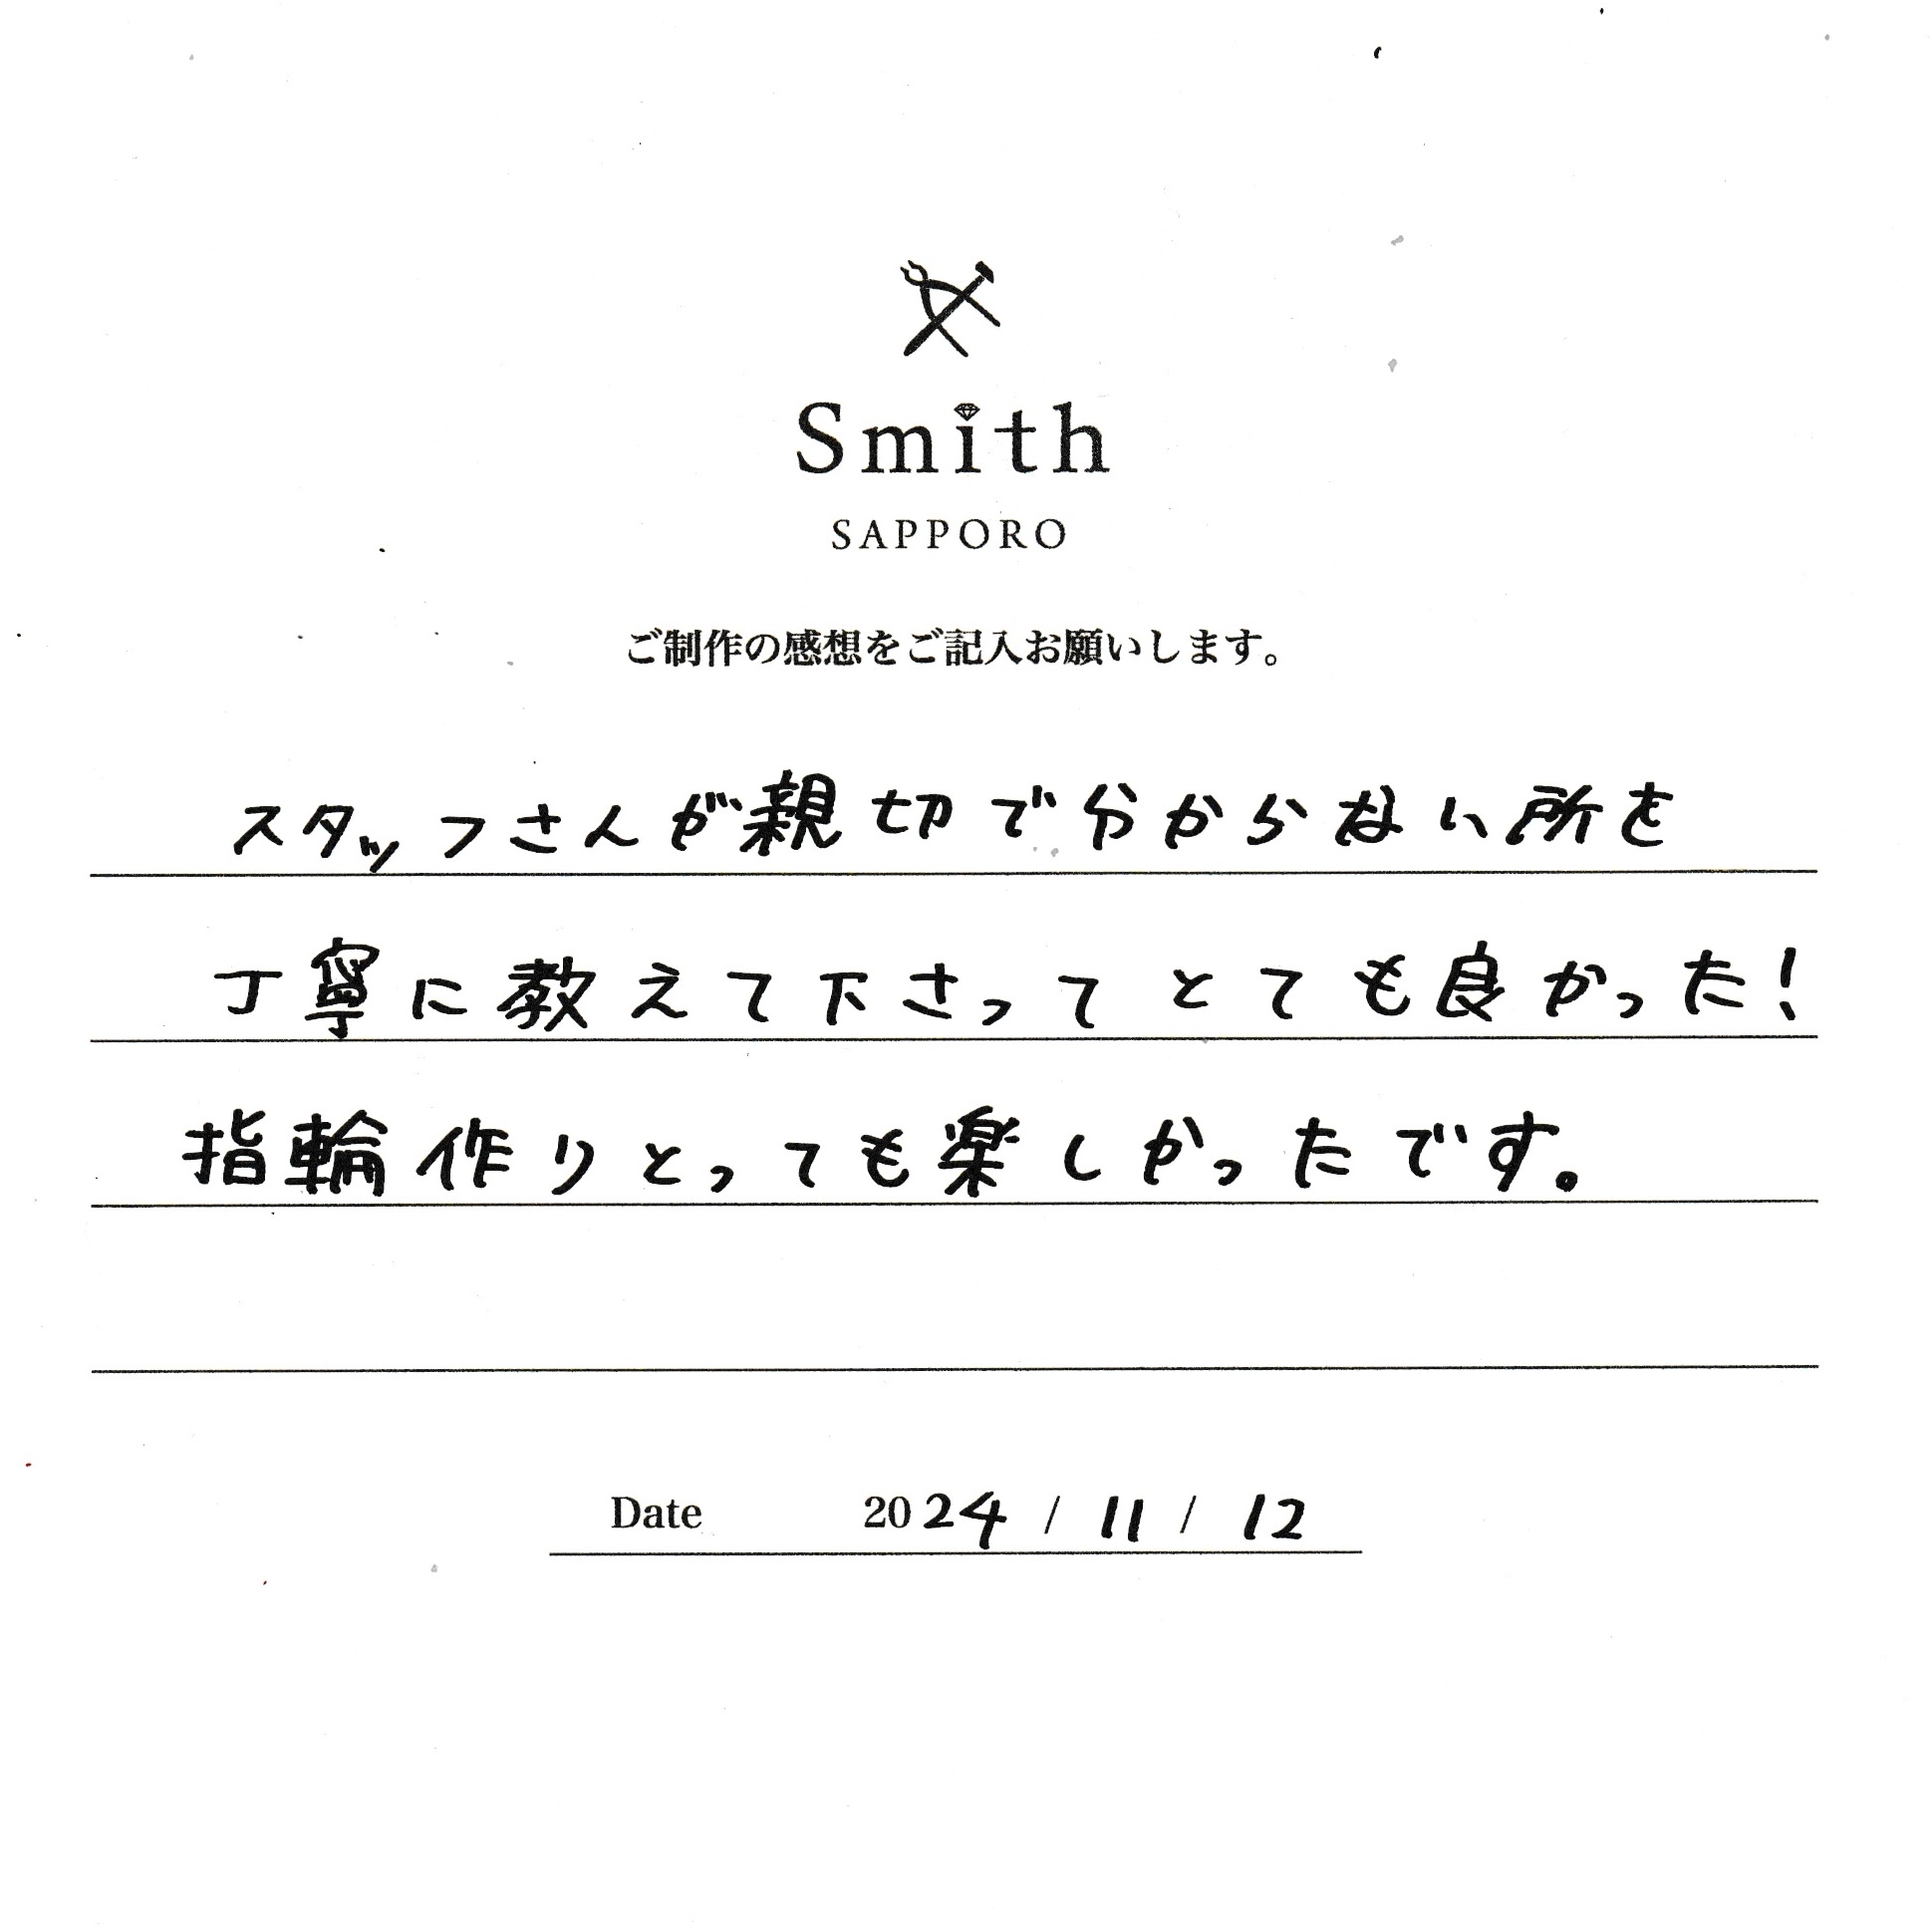 Smith
SAPPORO
ご制作の感想をご記入お願いします。
スタッフさんが親切で分からない所を
丁寧に教えて下さってとても良かった!
指輪作りとっても楽しかったです。
Date 2024 / 11 / 12